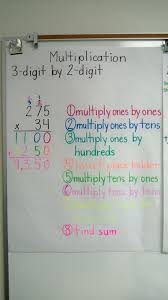 Multiplication
3-digit by 2-digit
275
x 34
1100
8250
9,350
① multiply ones by ones
② multiply ones by tens
③ multiply ones by
hundreds
④
⑤ multiply tens by ones
⑥ multiply tens by tens
⑦
⑧ find sum